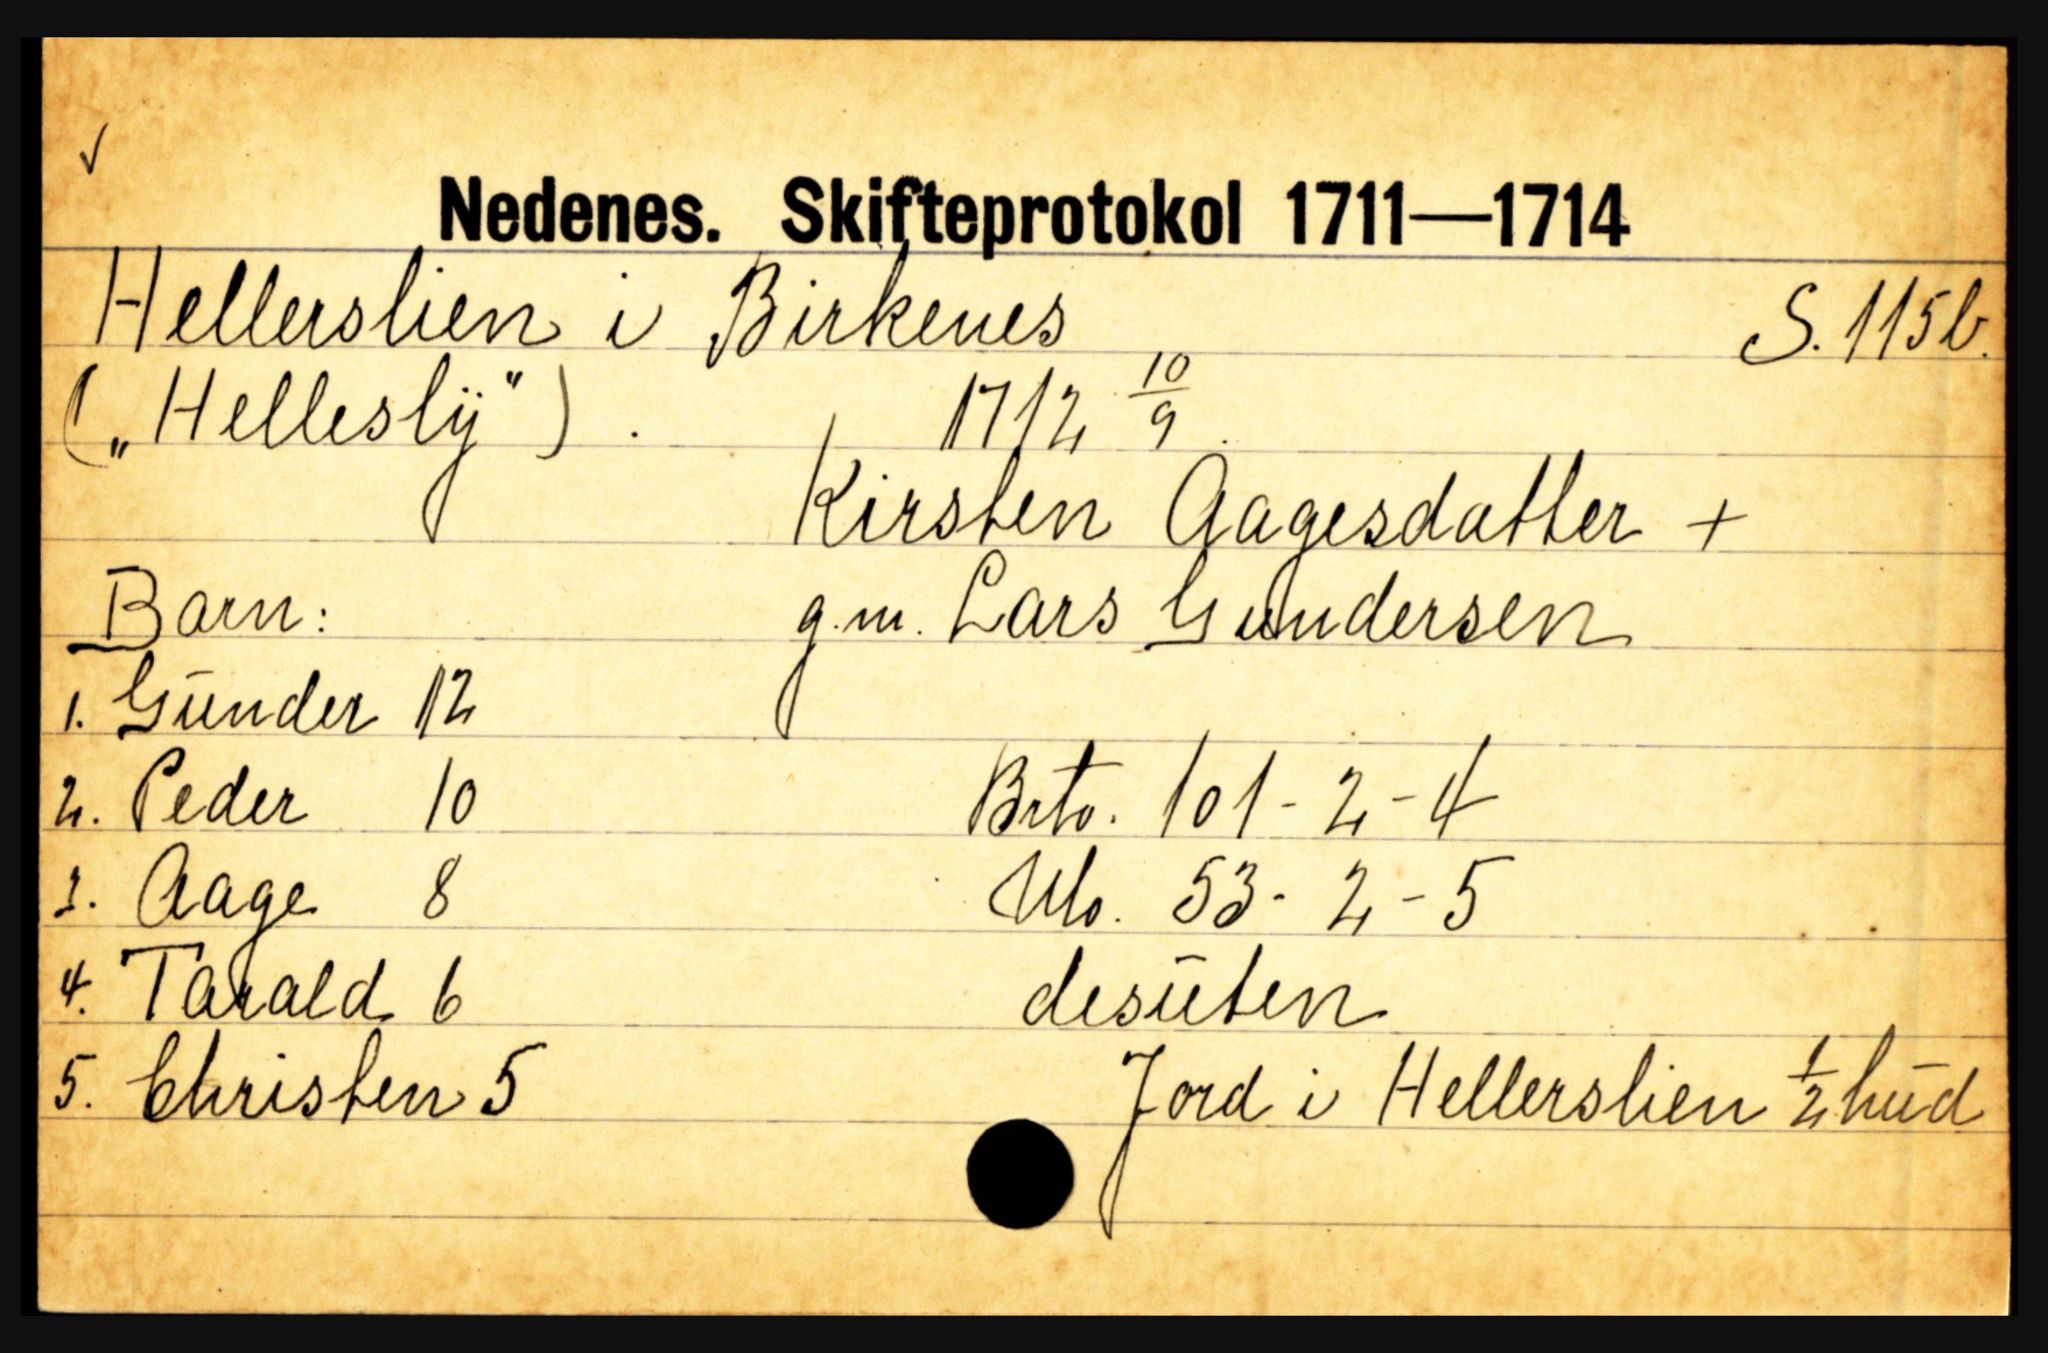 ✓
Nedenes. Skifteprotokol 1711—1714
Hellerslien i Birkenes S. 115b.
(„Helleslÿ") . 1712 10/9.
Kirsten Aagesdatter +
Barn: g.m. Lars Gundersen
1. Gūnder 12
2. Peder 10 Brto. 101 - 2 - 4
3. Aage 8 Nto. 53 - 2 - 5
4. Tarald 6 desūten
5. Christen 5 Jord i Hellerslien 1/2 hūd